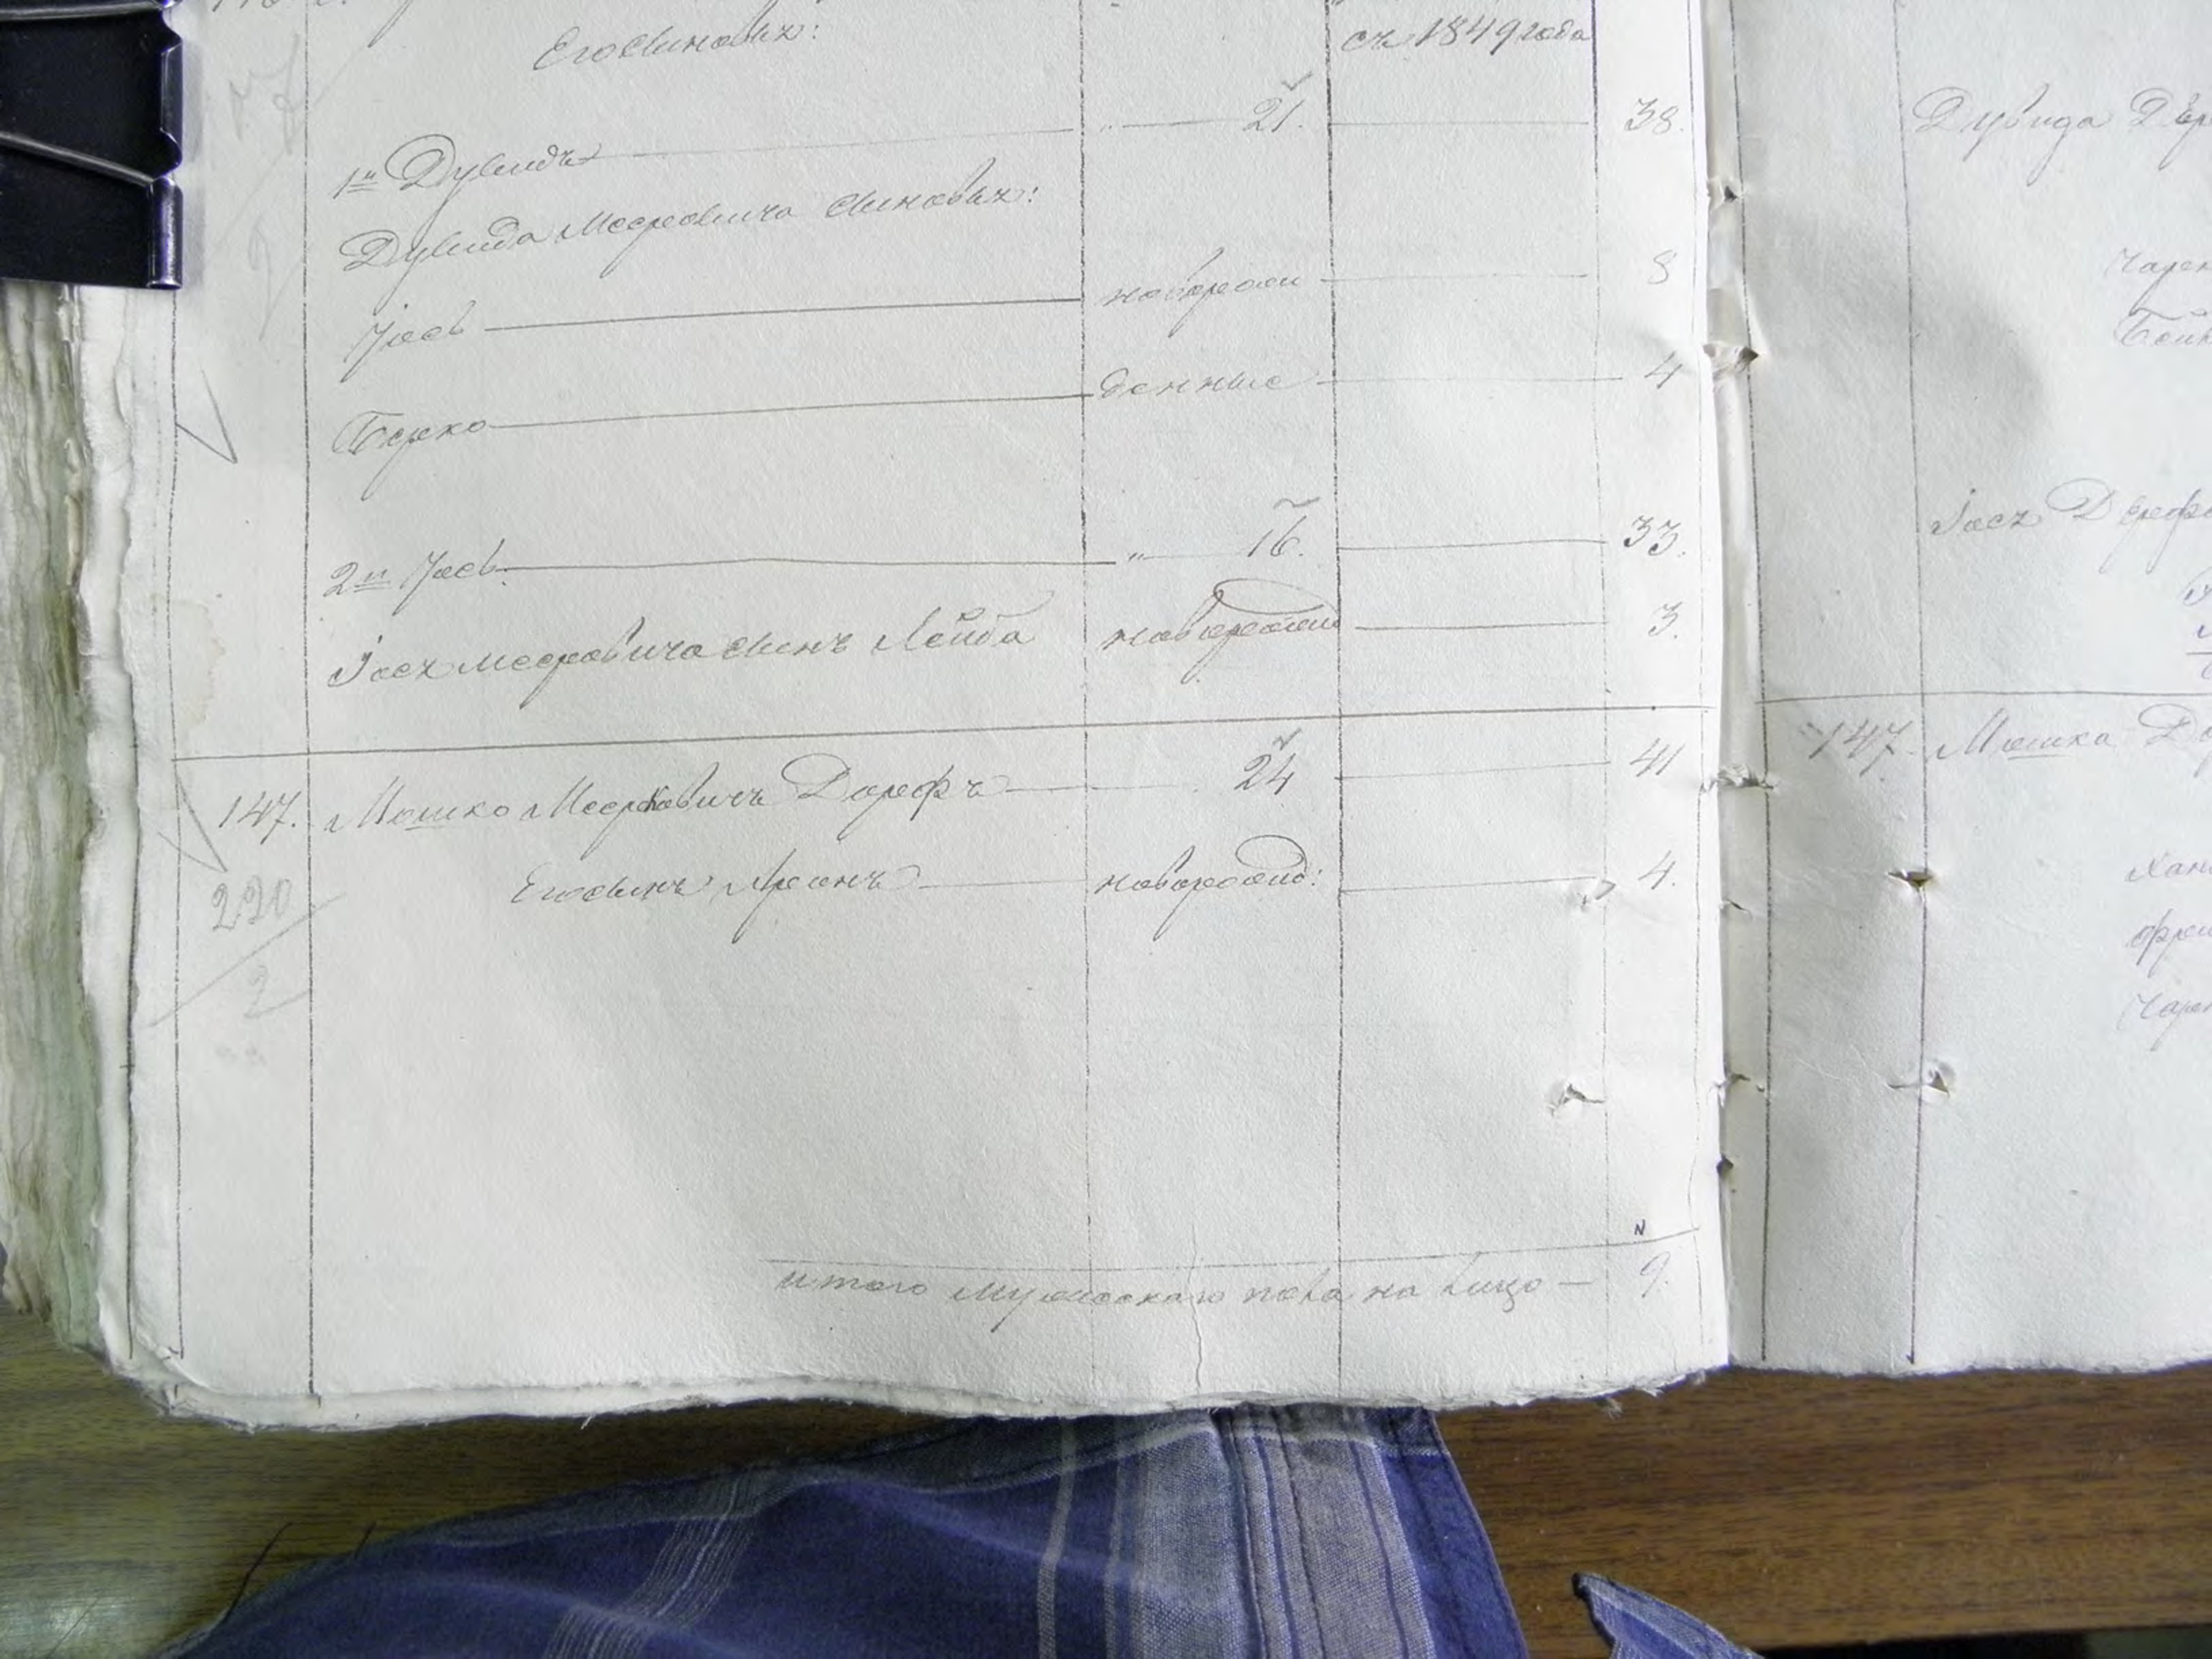 Его сыновья: съ 1849 года
1й Дувидъ " 21. 38.
Дувида Мееровича сыновья:
Іось новорож 8
Берко денные 4
2й Іось " 16. 33.
Іося Мееровича сынъ Лейба новорожд 3.
147. Мошко Меерковичъ Дорфъ 24 41
Его сынъ Аронъ новорожд: 4.
220
2
итого мужескаго пола на лицо — 9.
Дувида
Іося
147. Мошка